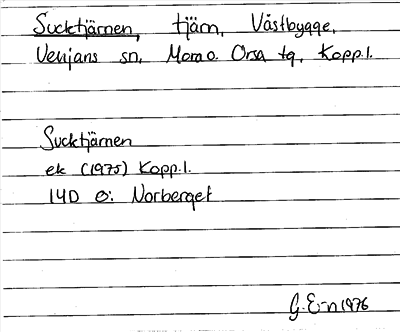 Sucktjärnen, tjärn, Västbygge,
Venjans sn, Mora o. Orsa tg, Kopp.l.
Sucktjärnen
ek (1975) Kopp.l.
14D ö: Norberget
G. E-n 1976